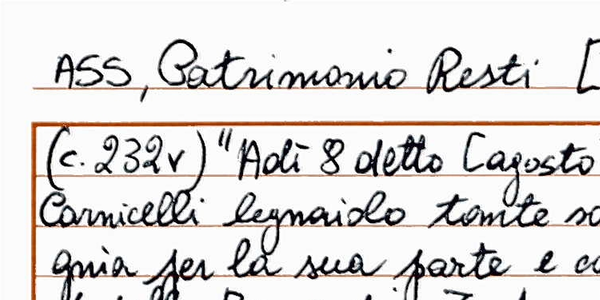 ASS, Patrimonio Resti [
(c. 232v) "Adì 8 detto [agosto
Carnicelli legnaiolo tante
gnia per la sua parte e